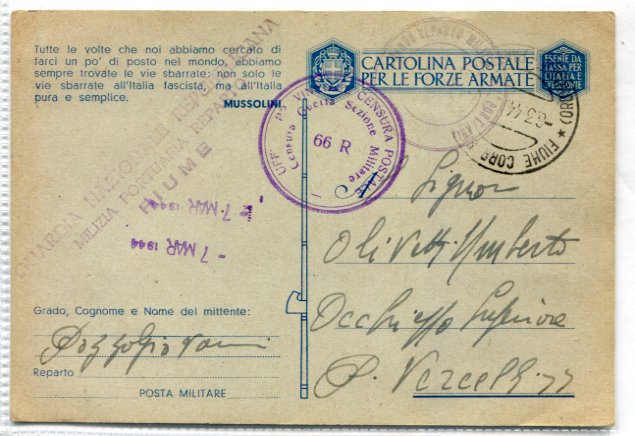 Tutte le volte che noi abbiamo cercato di
farci un po' di posto nel mondo, abbiamo
sempre trovate le vie sbarrate: non solo le
vie sbarrate all'Italia fascista, ma all'Italia
pura e semplice.
MUSSOLINI
CARTOLINA POSTALE
PER LE FORZE ARMATE
ESENTE DA
TASSA PER
L'ITALIA E
GUARDIA NAZIONALE REPUBBLICANA
MILIZIA PORTUARIA REPARTO
FIUME
UFF. CENSURA POSTALE
Censura Guerra Sezione Militare
66 R
REPARTO
FIUME CORR
3.44
- 7 MAR 1944
- 7 MAR 1944
Signor
Olivetti Umberto
Occhieppo Superiore
P. Vercelli 77
Grado, Cognome e Nome del mittente:
Pozzo Giovanni
Reparto
POSTA MILITARE